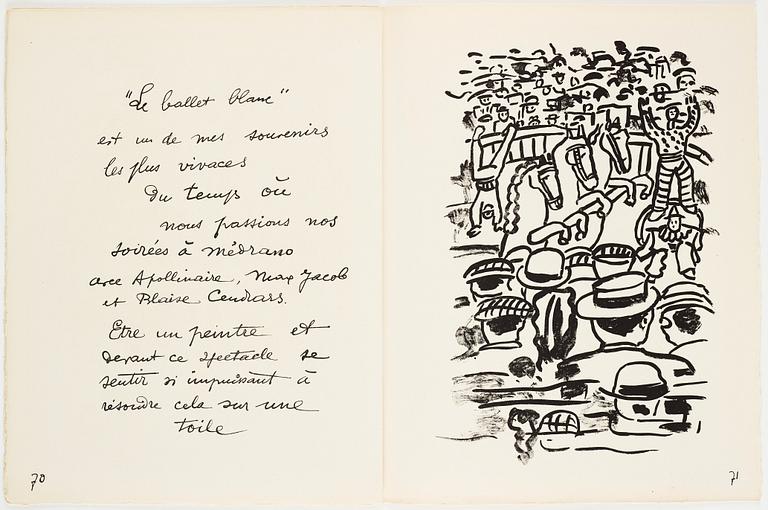 "Le ballet blanc"
est un de mes souvenirs
les plus vivaces
du temps où
nous passions nos
soirées à Médrano
avec Apollinaire, Max Jacob
et Blaise Cendrars.
Etre un peintre et
devant ce spectacle se
sentir si impuissant à
résoudre cela sur une
toile
70
71